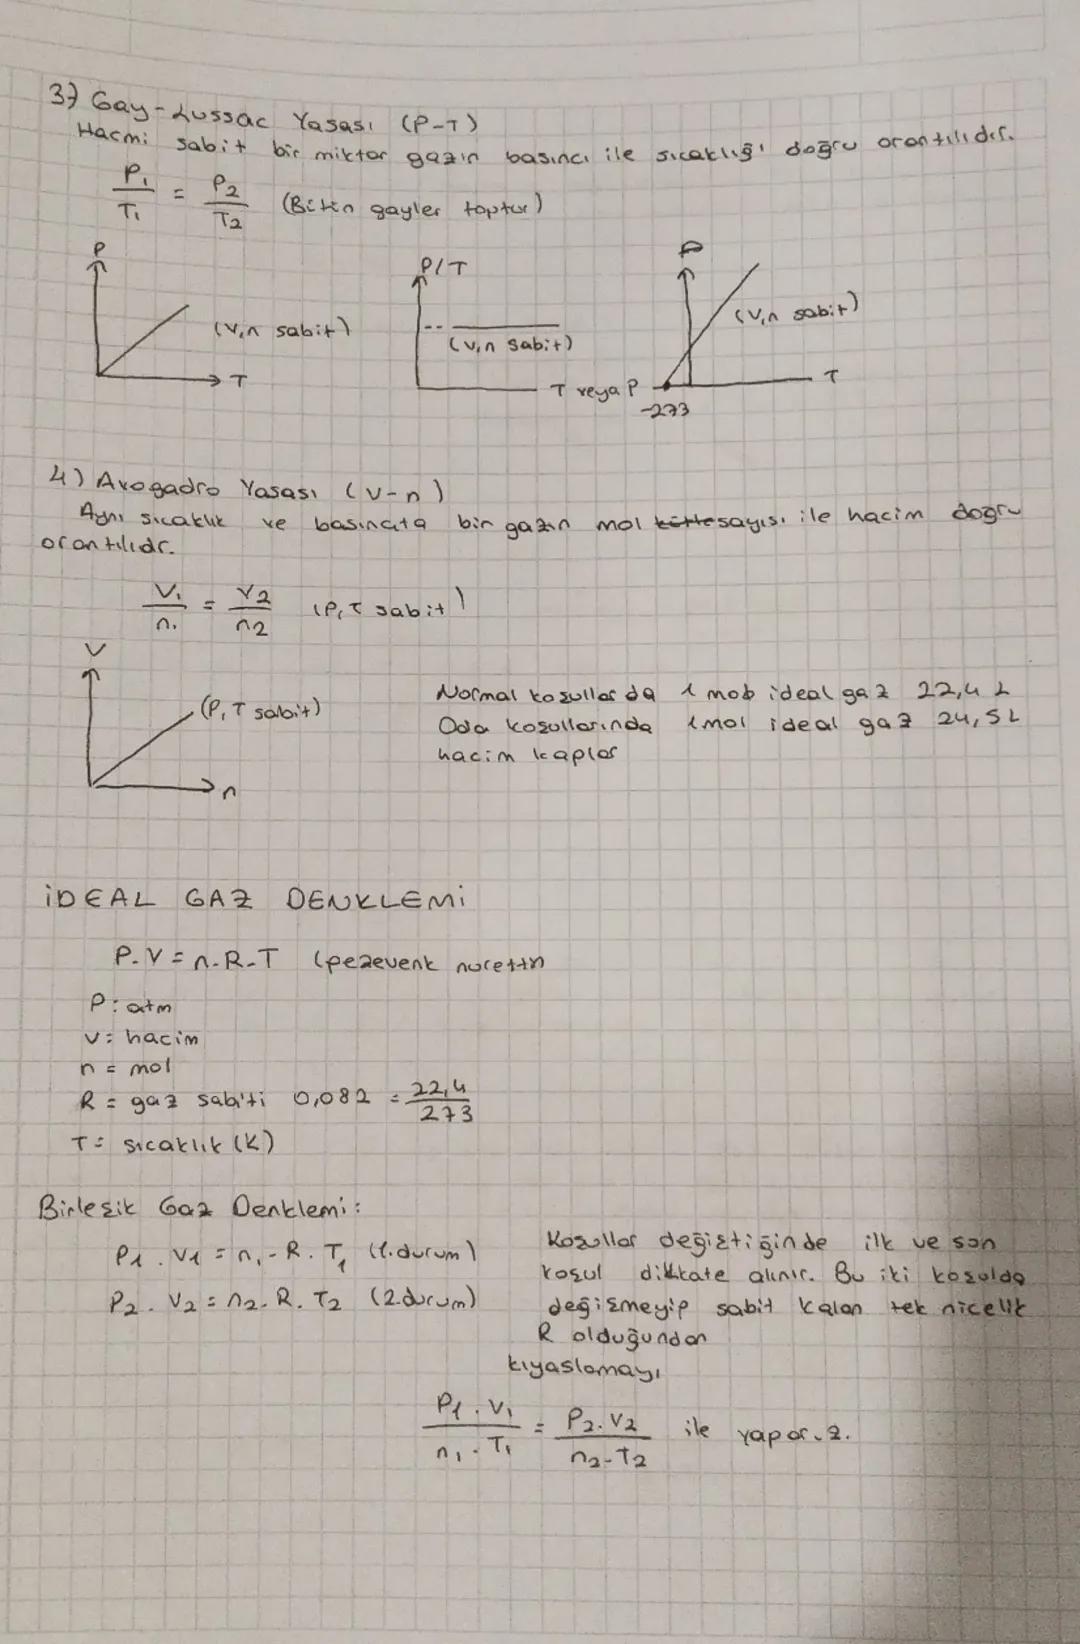 3) Gay-Lussac Yasası (P-T)
Hacmi sabit bir miktar gazın basıncı ile sıcaklığı doğru orantılıdır.
P₁/T₁ = P₂/T₂ (Bütün gayler toptur)
P
(V,n sabit)
T
P/T
(V,n sabit)
T veya P
P
(V,n sabit)
T
-273
4) Avogadro Yasası (V-n)
Aynı sıcaklık ve basınçta bir gazın mol kütlesayısı ile hacim doğru
orantılıdr.
V₁/n₁ = V₂/n₂ (P,T sabit)
V
(P,T sabit)
n
Normal koşullarda 1 mob ideal gaz 22,4 L
Oda koşullarında 1mol ideal gaz 24,5L
hacim kaplar
İDEAL GAZ DENKLEMİ
P.V = n.R.T (pezevenk nurettin
P: atm
V: hacim
n = mol
R = gaz sabiti 0,082 = 22,4/273
T= sıcaklık (K)
Birleşik Gaz Denklemi:
P₁.V₁ = n₁.R.T₁ (1.durum)
P₂.V₂ = n₂.R.T₂ (2.durum)
Koşullar değiştiğinde ilk ve son
koşul dikkate alınır. Bu iki koşulda
değişmeyip sabit kalan tek nicelik
R olduğundan
kıyaslamayı
P₁.V₁/n₁.T₁ = P₂.V₂/n₂.T₂ ile yaparız.